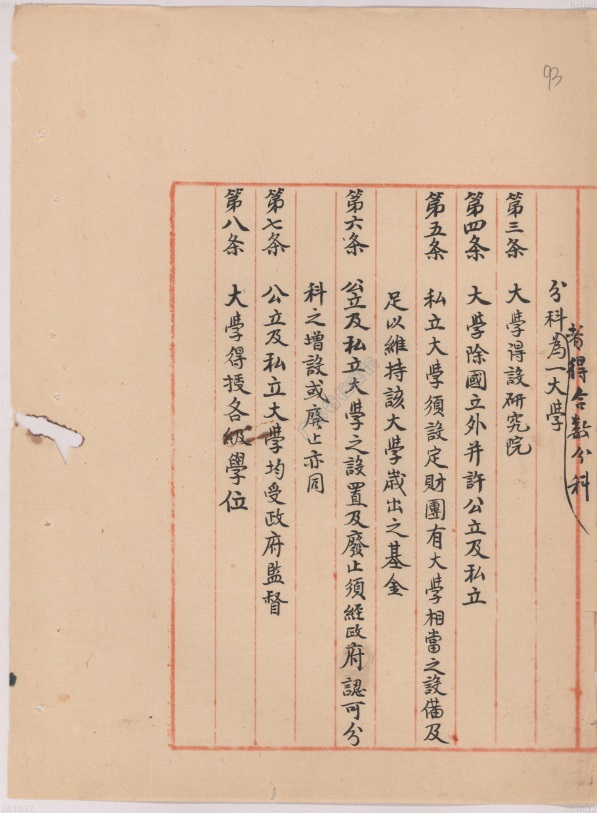 93
者得合數分科
分科為一大學
第三条 大學得設研究院
第四条 大學除國立外并許公立及私立
第五条 私立大學須設定財團有大學相當之設備及
足以維持該大學歲出之基金
第六条 公立及私立大學之設置及廢止須經政府認可分
科之增設或廢止亦同
第七条 公立及私立大學均受政府監督
第八条 大學得授各級學位